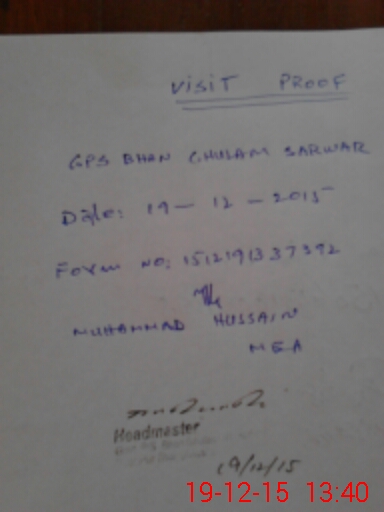 VISIT PROOF
GPS BHAN GHULAM SARWAR
Date: 19 - 12 - 2015
Form NO: 1512191337392
MUHAMMAD HUSSAIN
MEA
Headmaster
19/12/15
19-12-15 13:40